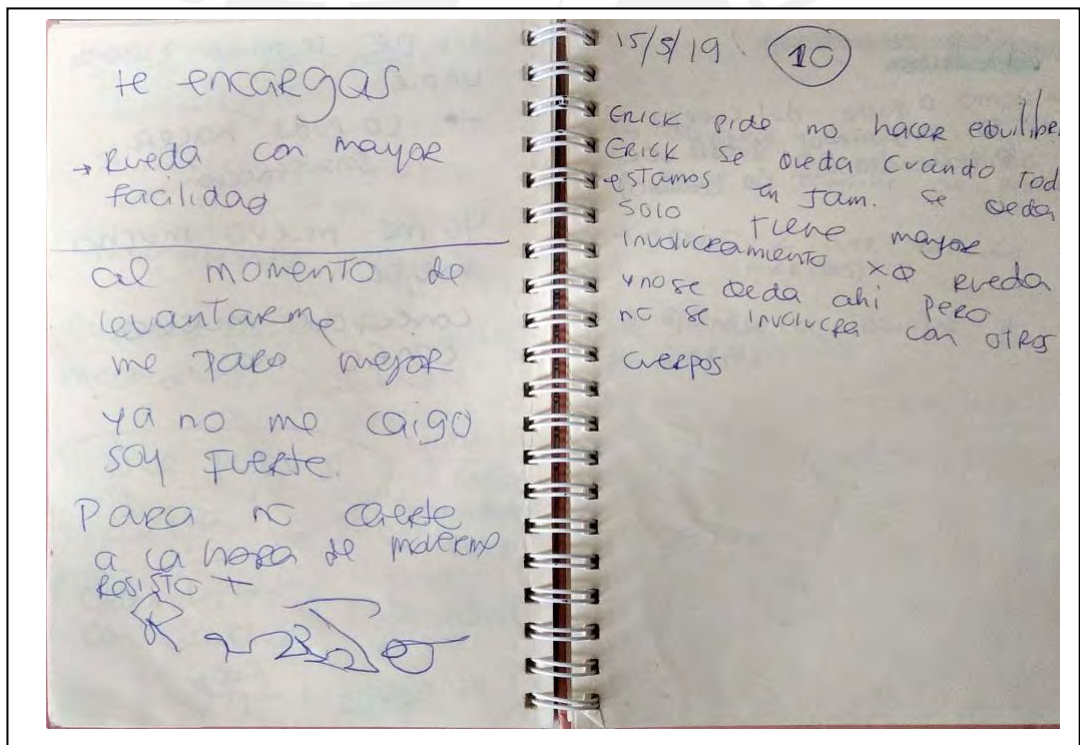 te encargas
→ Rueda con mayor
facilidad
al momento de
levantarme
me paro mejor
ya no me caigo
soy fuerte.
Para no caerte
a la hora de moverme
Resisto +
15/5/19 10
Erick pide no hacer equilibr
Erick se queda cuando tod
estamos en Jam. Se qeda
solo tiene mayor
involucramiento xq rueda
y no se qeda ahi pero
no se involucra con otros
cuerpos